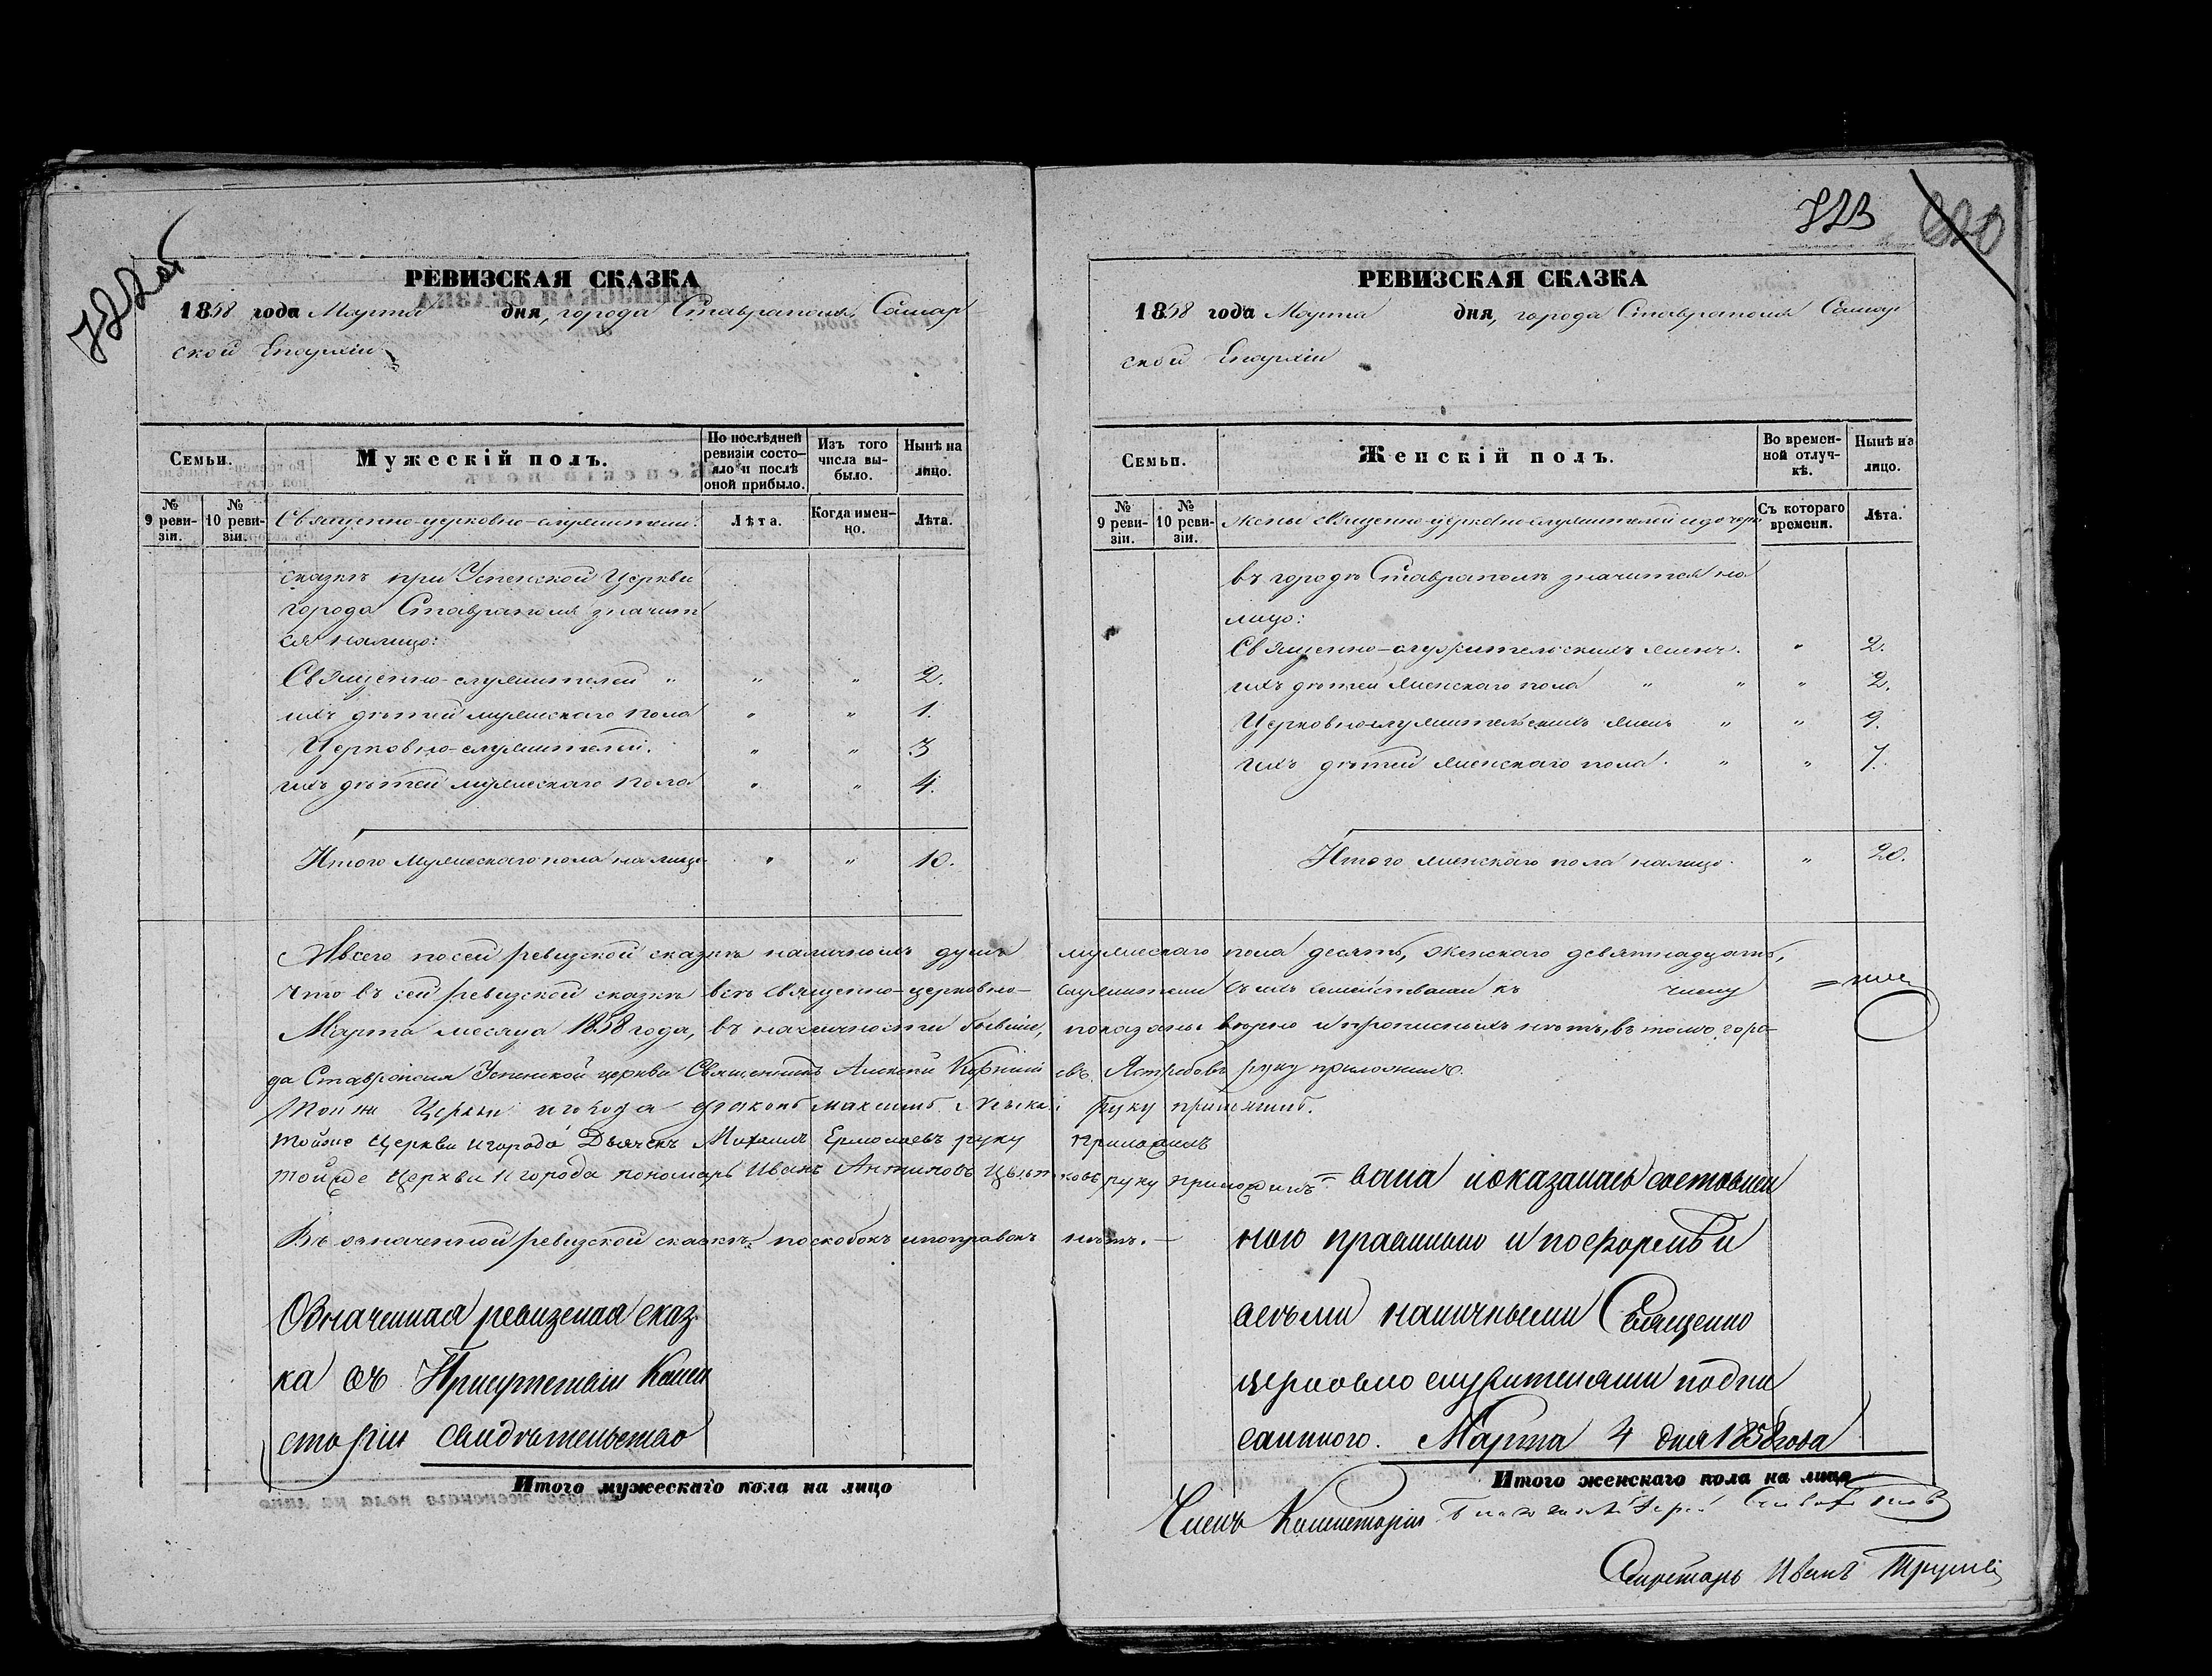 722об
РЕВИЗСКАЯ СКАЗКА
1858 года Марта дня, города Ставрополя Самар
ской Епархіи
Семьи.
Мужескій полъ.
По послѣдней ревизіи состояло и послѣ оной прибыло.
Изъ того числа выбыло.
Нынѣ на лицо.
№ 9 ревизіи.
№ 10 ревизіи.
Священно-церковно-служители.
Лѣта.
Когда именно.
Лѣта.
сказкѣ при Успенской Церкви
города Ставрополя значит
ся налицо:
Священно-служителей " " " 2.
ихъ дѣтей мужескаго пола " " 1.
Церковно-служителей. " " 3
ихъ дѣтей мужескаго пола " " 4.
Итого мужескаго пола налицо " " 10.
723
820
РЕВИЗСКАЯ СКАЗКА
1858 года Марта дня, города Ставрополя Самар
ской Епархіи
Семьи.
Женскій полъ.
Во временной отлучкѣ.
Нынѣ на лицо.
№ 9 ревизіи.
№ 10 ревизіи.
Жены священно-церковно-служителей и дочери
Съ котораго времени.
Лѣта.
въ городѣ Ставрополѣ значится на
лицо:
Священно-служительскихъ женъ. " 2.
ихъ дѣтей женскаго пола " " " 2.
Церковнослужительскихъ женъ " " 9.
ихъ дѣтей женскаго пола. " " 7.
Итого женскаго пола налицо. " 20.
А всего по сей ревизской сказкѣ наличныхъ душъ мужескаго пола десять, женскаго девятнадцать,
что въ сей ревизской сказкѣ всѣ священно-церковно-служители съ ихъ семействами къ числу
Марта месяца 1858 года, въ наличности бывшіе, показаны вѣрно и прописныхъ нѣтъ, въ томъ горо-
да Ставрополя Успенской церкви Священникъ Алексѣй Ястребовъ руку приложилъ.
Той же Церкви и города діаконъ Максимъ руку приложилъ.
Тойже Церкви и города Дьячекъ Михаилъ Ермолаевъ руку приложилъ
Тойже Церкви и города пономарь Иванъ Антиповъ руку приложилъ
Въ означенной ревизской сказкѣ поскобокъ ипоправокъ нѣтъ. —
Означенная ревизская сказ-
ка въ Присутствіи Конси
сторіи свидѣтельство
= вана и оказалась составлен
ною правильно и по формѣ и
всѣми наличными Священно
церковно служителями подпи
санною. Марта 4 дня 1858 года
Итого мужескаго пола на лицо
Итого женскаго пола на лицо
Членъ Консисторіи
Секретарь Иванъ